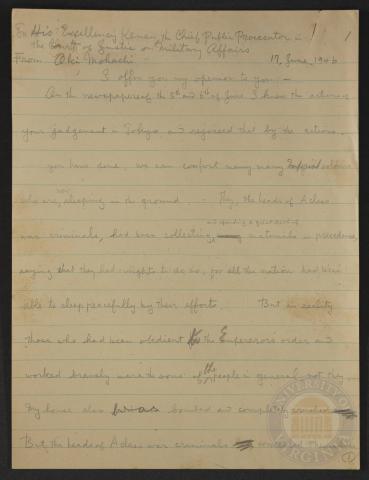 To His Excellency Keenan, the Chief Public Prosecutor in 1 1
the Court of Justice on Military Affairs
From Oki Mohachi 17, June, 1946
I offer you my opinion to you:-
On the newspapers of the 5th and 6th of June I knew the actions of
your judgement in Tokyo and rejoiced that by the actions
you have done, we can comfort many many soldiers
who are now sleeping in the ground. They, the heads of A class
and spending a great deal of
war criminals, had been collecting materials in precedence
saying that they had rights to do so, for all the nation had been
able to sleep peacefully by their efforts. But in reality
those who had been obedient to the Emperor's order and
worked bravely were the sons of the people in general, not they.
My house also was bombed and completely
But the heads of A class war criminals concealed
UNIVERSITY OF VIRGINIA
1